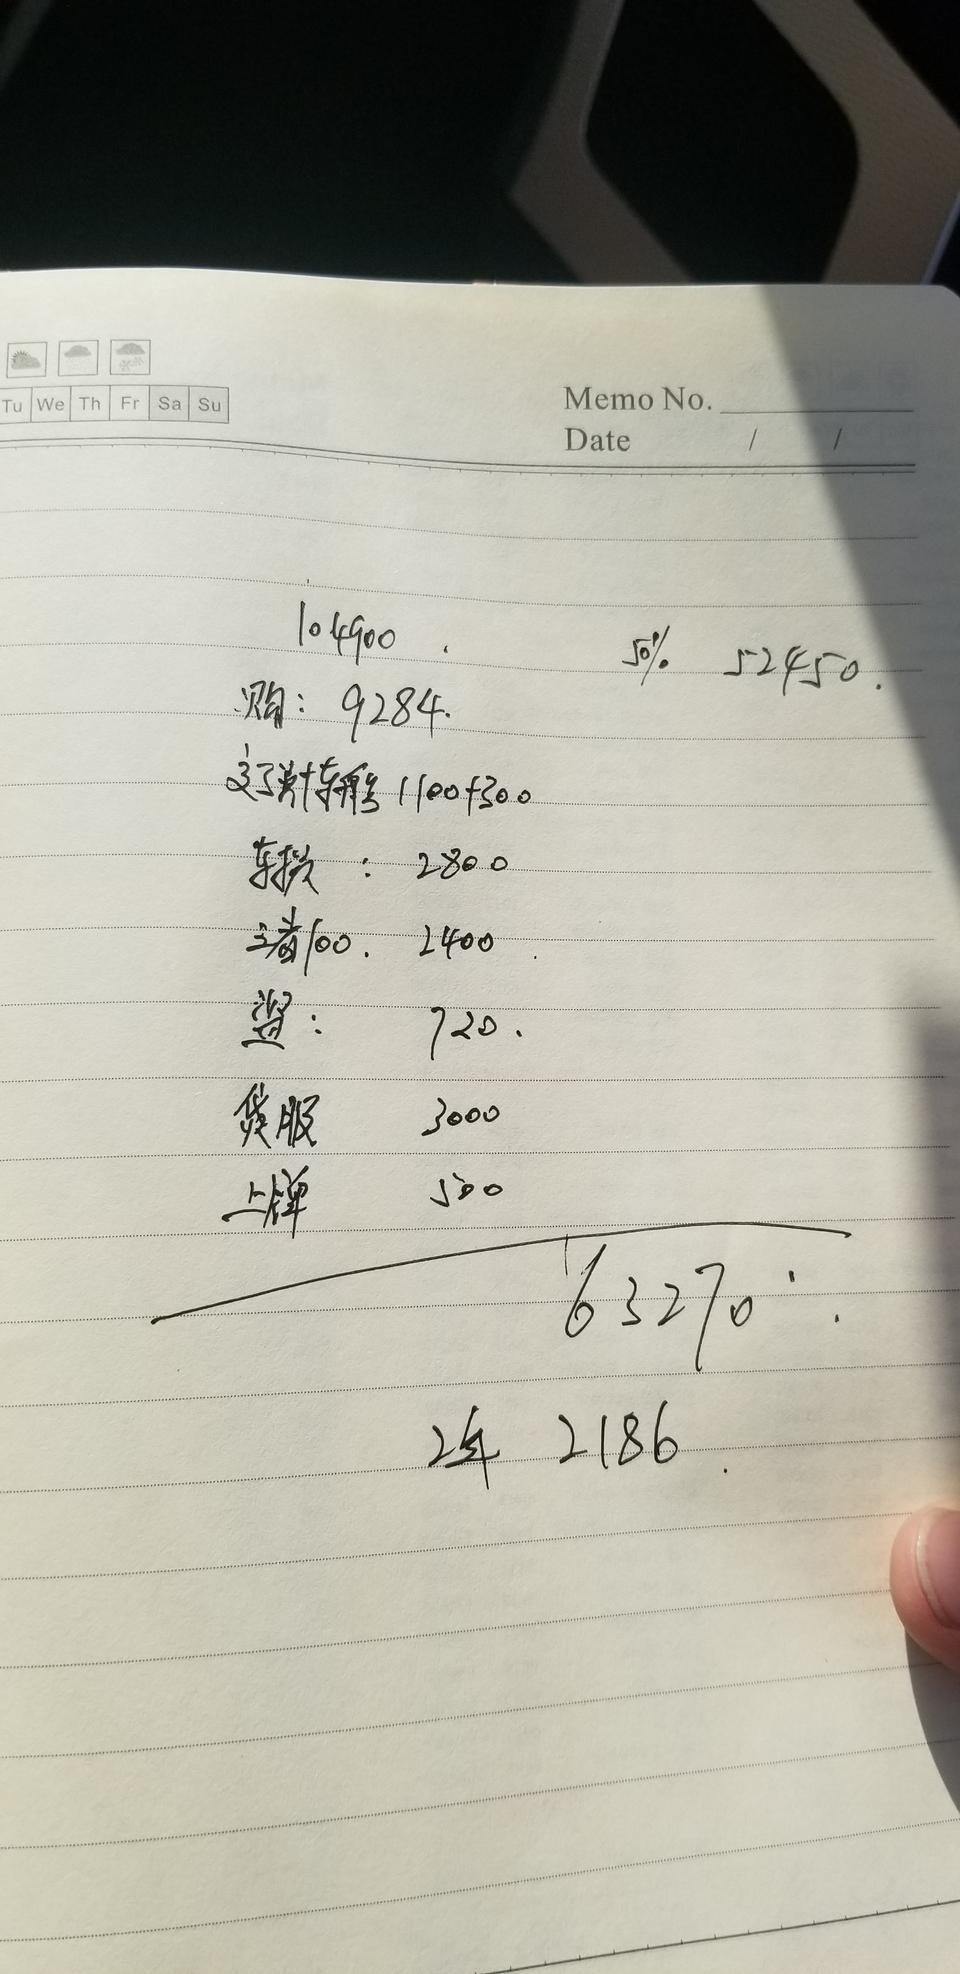 Tu We Th Fr Sa Su
Memo No.
Date / /
104900. 50% 52450.
购: 9284.
1100+300
车损: 2800
三者100. 2400
盗: 720.
贷服 3000
上牌 500
63270.
2年 2186.